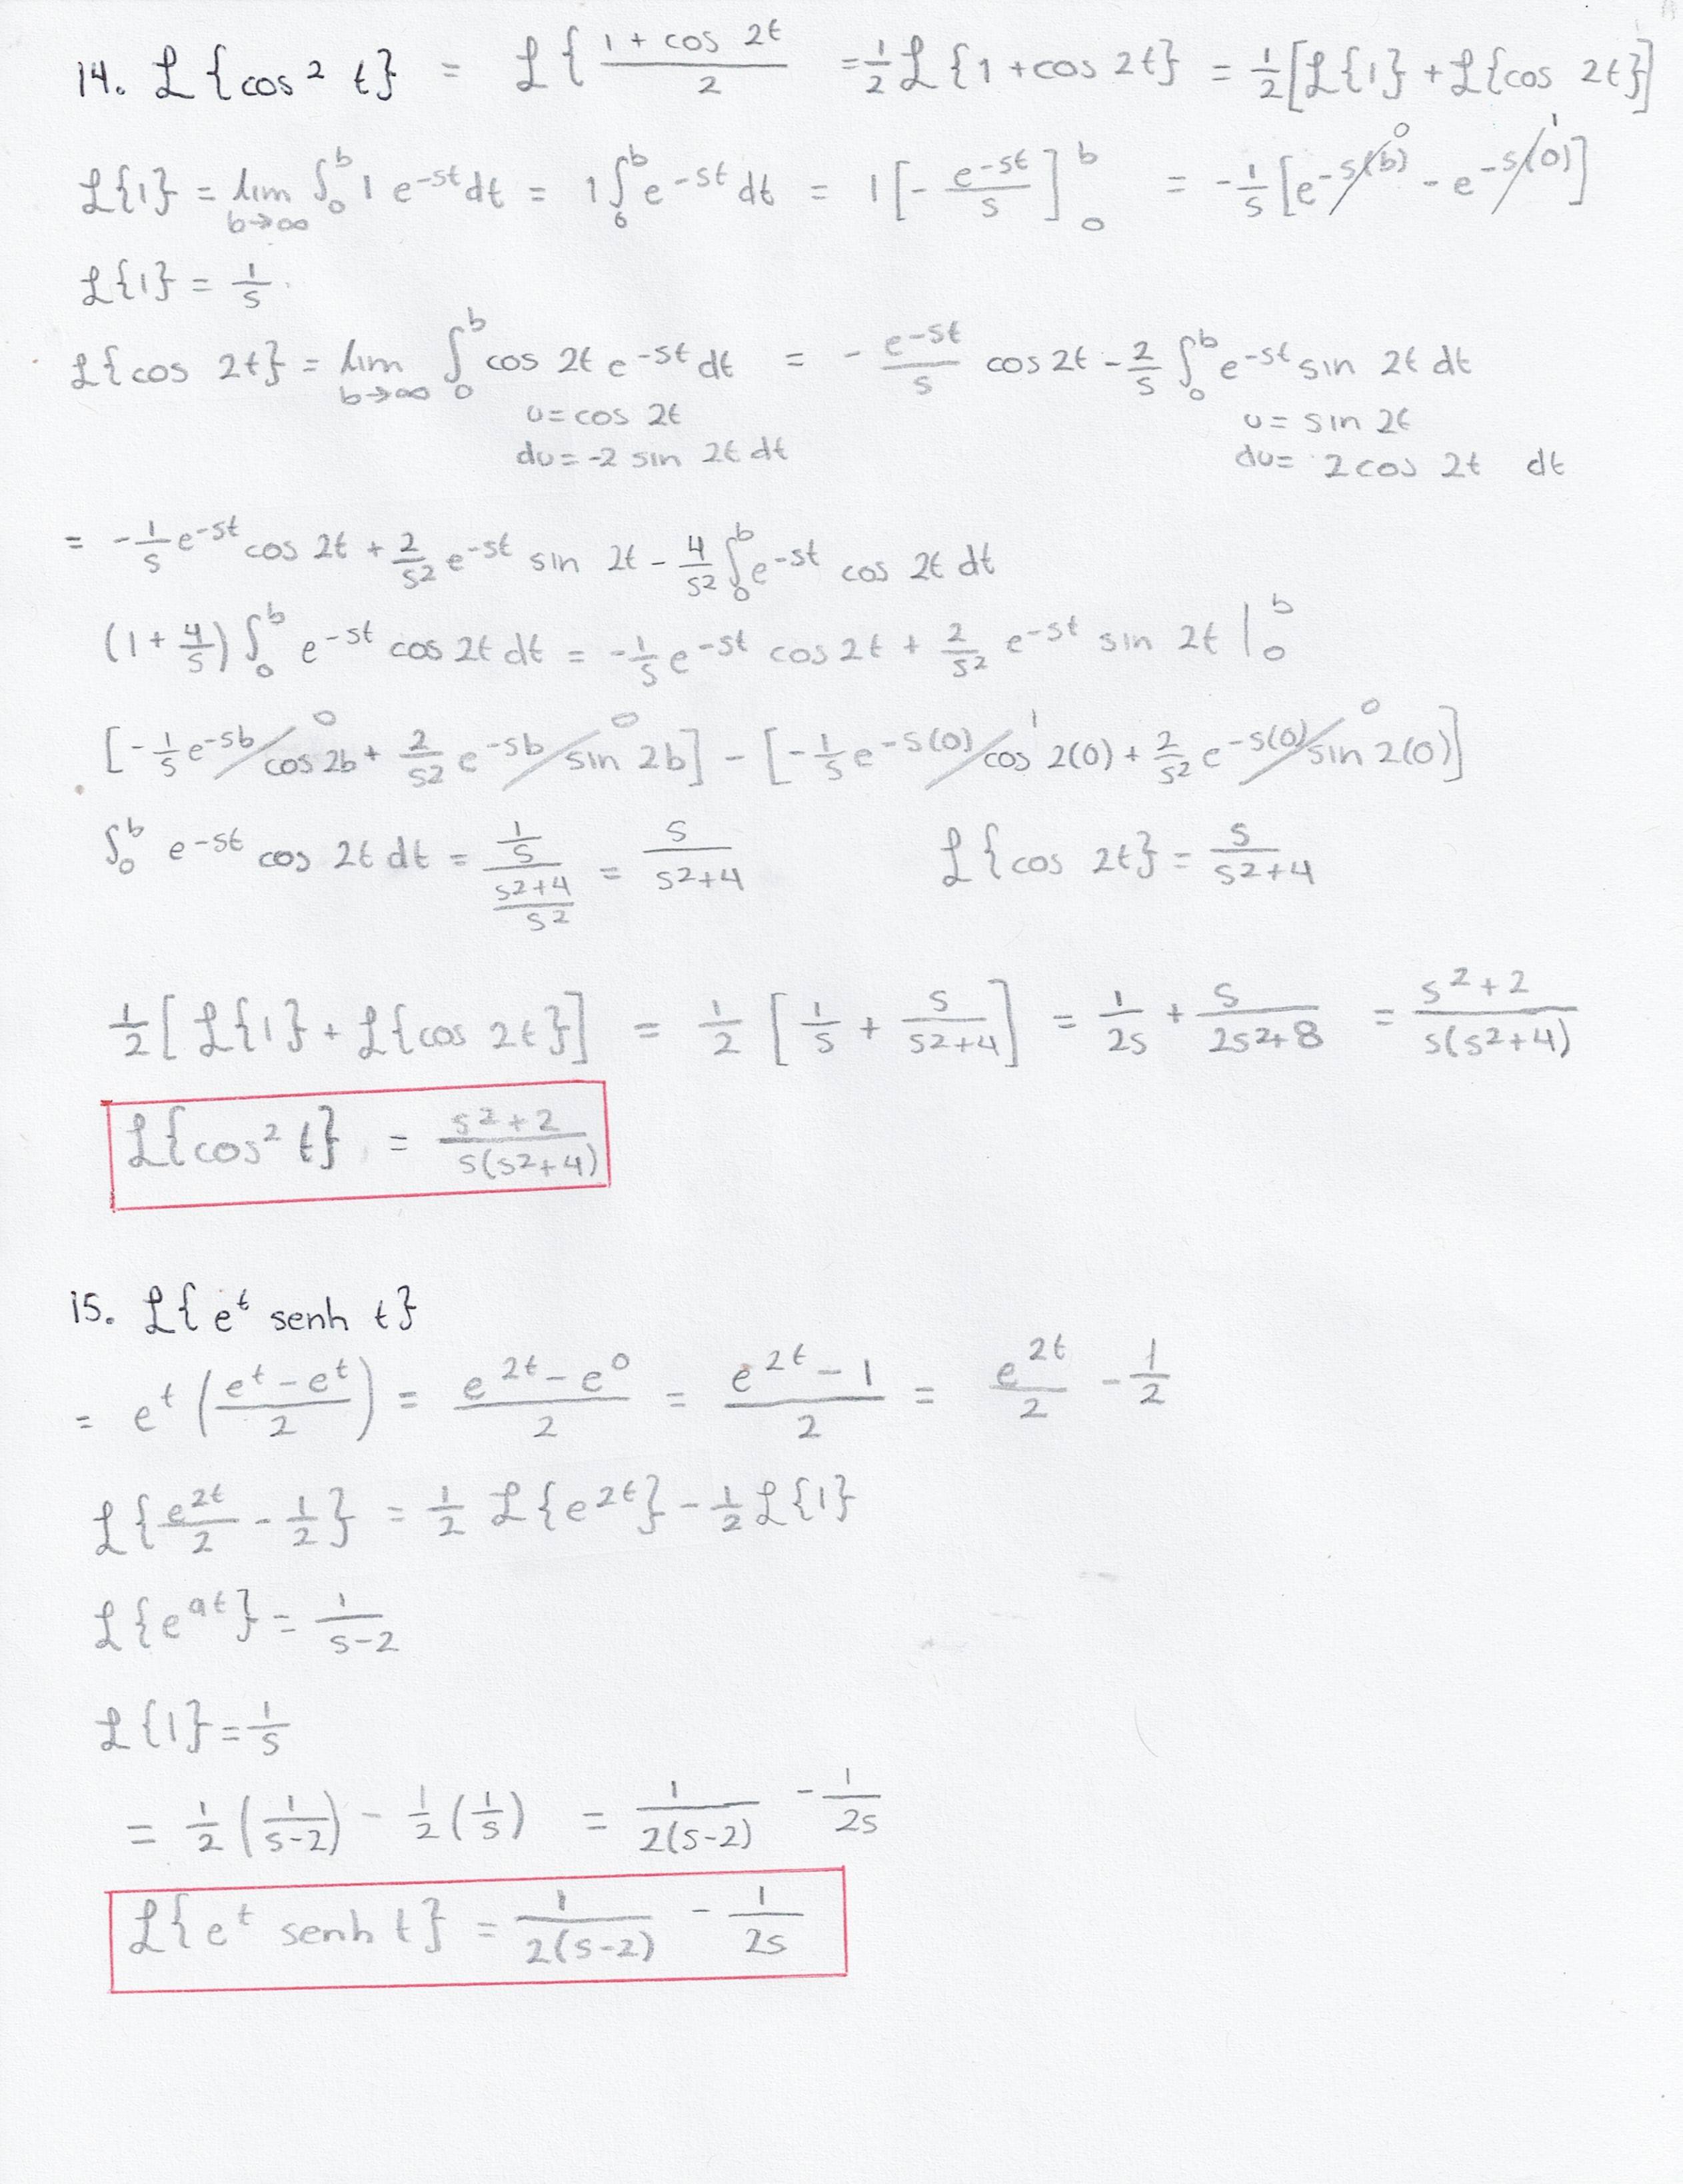 14. ℒ{cos² t} = ℒ{(1 + cos 2t)/2 = 1/2 ℒ{1 + cos 2t} = 1/2[ℒ{1} + ℒ{cos 2t}]
ℒ{1} = lim b→∞ ∫₀ᵇ 1 e^-st dt = 1∫₀ᵇ e^-st dt = 1[- e^-st/s]₀ᵇ = -1/s [e^-s(b) 0 - e^-s(0) 1]
ℒ{1} = 1/s
ℒ{cos 2t} = lim b→∞ ∫₀ᵇ cos 2t e^-st dt = - e^-st/s cos 2t - 2/s ∫₀ᵇ e^-st sin 2t dt
u = cos 2t u = sin 2t
du = -2 sin 2t dt du = 2 cos 2t dt
= -1/s e^-st cos 2t + 2/s² e^-st sin 2t - 4/s² ∫₀ᵇ e^-st cos 2t dt
(1 + 4/s) ∫₀ᵇ e^-st cos 2t dt = -1/s e^-st cos 2t + 2/s² e^-st sin 2t |₀ᵇ
[-1/s e^-sb cos 2b 0 + 2/s² e^-sb sin 2b 0] - [-1/s e^-s(0) cos 2(0) 1 + 2/s² e^-s(0) sin 2(0) 0]
∫₀ᵇ e^-st cos 2t dt = (1/s)/((s²+4)/s²) = s/(s²+4) ℒ{cos 2t} = s/(s²+4)
1/2[ℒ{1} + ℒ{cos 2t}] = 1/2 [1/s + s/(s²+4)] = 1/2s + s/(2s²+8) = (s²+2)/(s(s²+4))
ℒ{cos² t} = (s²+2)/(s(s²+4))
15. ℒ{e^t senh t}
= e^t ((e^t - e^t)/2) = (e^2t - e^0)/2 = (e^2t - 1)/2 = e^2t/2 - 1/2
ℒ{e^2t/2 - 1/2} = 1/2 ℒ{e^2t} - 1/2 ℒ{1}
ℒ{e^at} = 1/(s-2)
ℒ{1} = 1/s
= 1/2 (1/(s-2)) - 1/2 (1/s) = 1/(2(s-2)) - 1/2s
ℒ{e^t senh t} = 1/(2(s-2)) - 1/2s